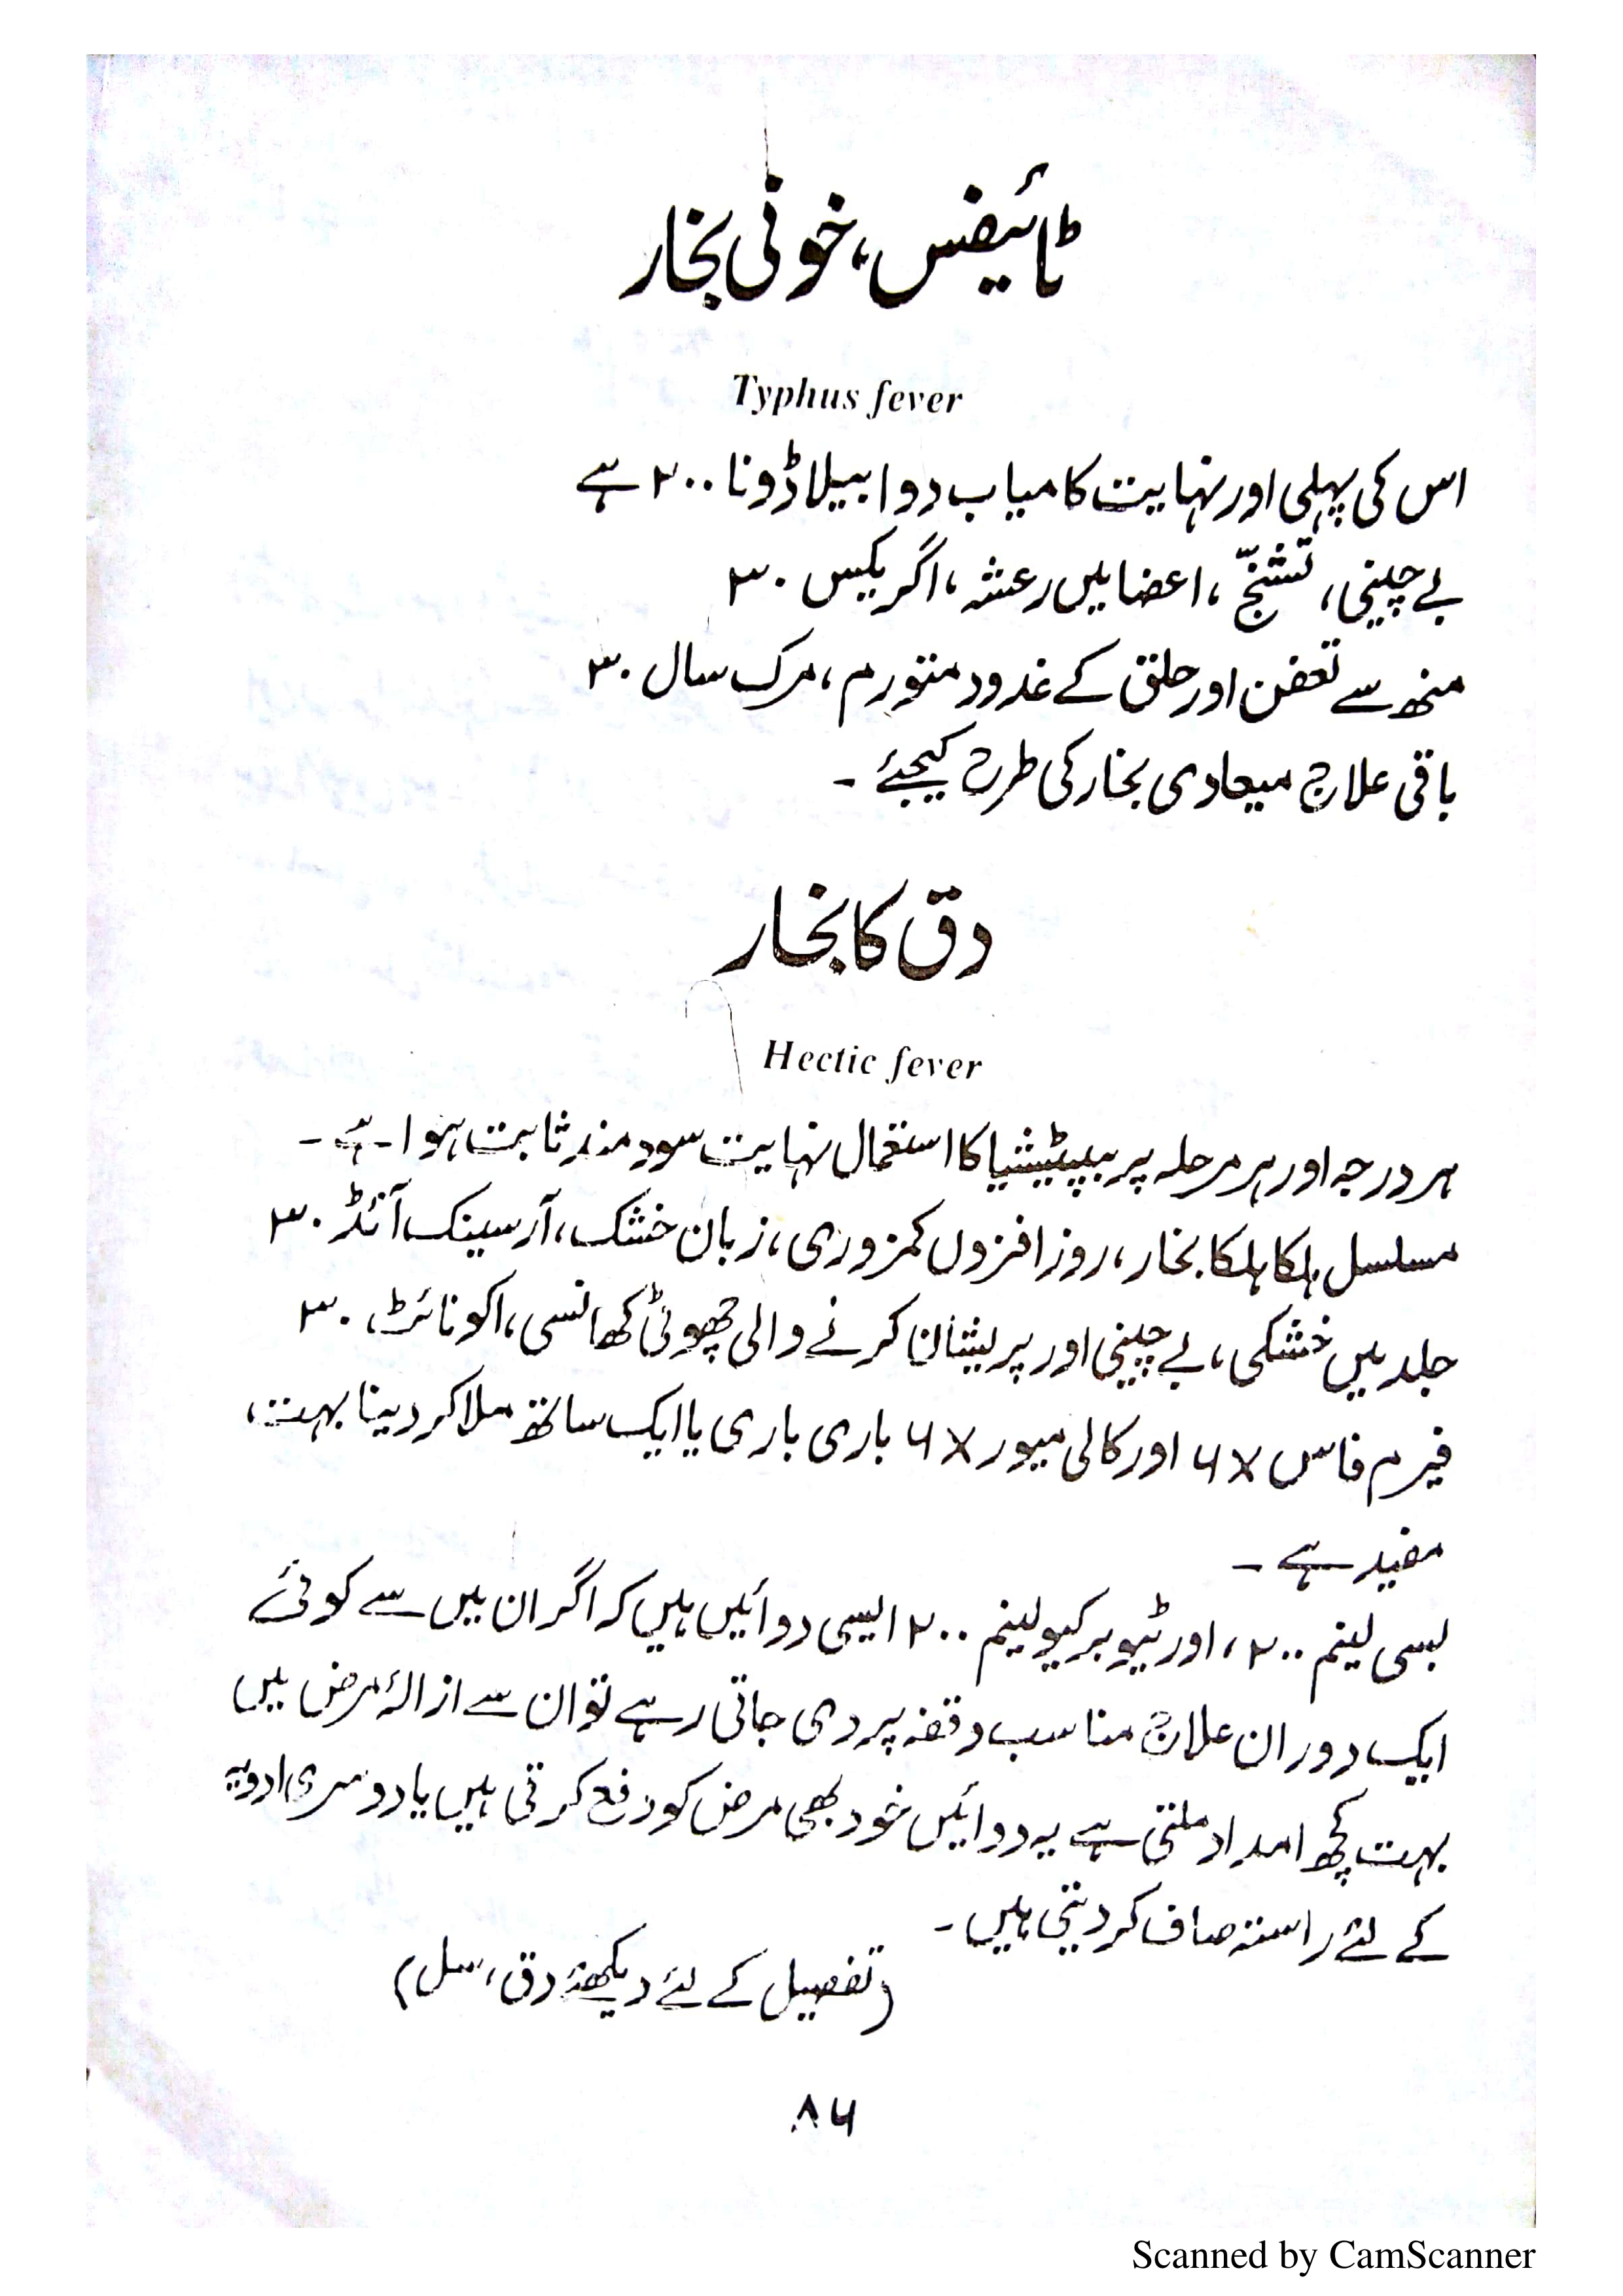 ٹائیفس، خونی بخار
Typhus fever
اس کی پہلی اور نہایت کامیاب دوا بیلاڈونا ۲۰۰ ہے
بے چینی، تشنّج، اعضا میں رعشہ، اگریکس ۳۰
منھ سے تعفن اور حلق کے غدود متورم، مرک سال ۳۰
باقی علاج میعادی بخار کی طرح کیجئے ۔
دق کا بخار
Hectic fever
ہر درجہ اور ہر مرحلہ پر بپٹیشیا کا استعمال نہایت سود مند ثابت ہوا ہے ۔
مسلسل ہلکا ہلکا بخار، روز افزوں کمزوری، زبان خشک، آرسینک آئڈ ۳۰
جلد میں خشکی، بے چینی اور پریشان کرنے والی چھوٹی کھانسی، اکونائٹ ۳۰
فیرم فاس ۶x اور کالی میور ۶x باری باری یا ایک ساتھ ملا کر دینا بہت
مفید ہے ۔
بسی لینم ۲۰۰، اور ٹیوبرکیولینم ۲۰۰ ایسی دوائیں ہیں کہ اگر ان میں سے کوئی
ایک دوران علاج مناسب وقفہ پر دی جاتی رہے تو ان سے ازالۂ مرض میں
بہت کچھ امداد ملتی ہے یہ دوائیں خود بھی مرض کو دفع کرتی ہیں یا دوسری ادویہ
کے لئے راستہ صاف کر دیتی ہیں ۔
(تفصیل کے لئے دیکھئے دق، سل)
۸۶
Scanned by CamScanner